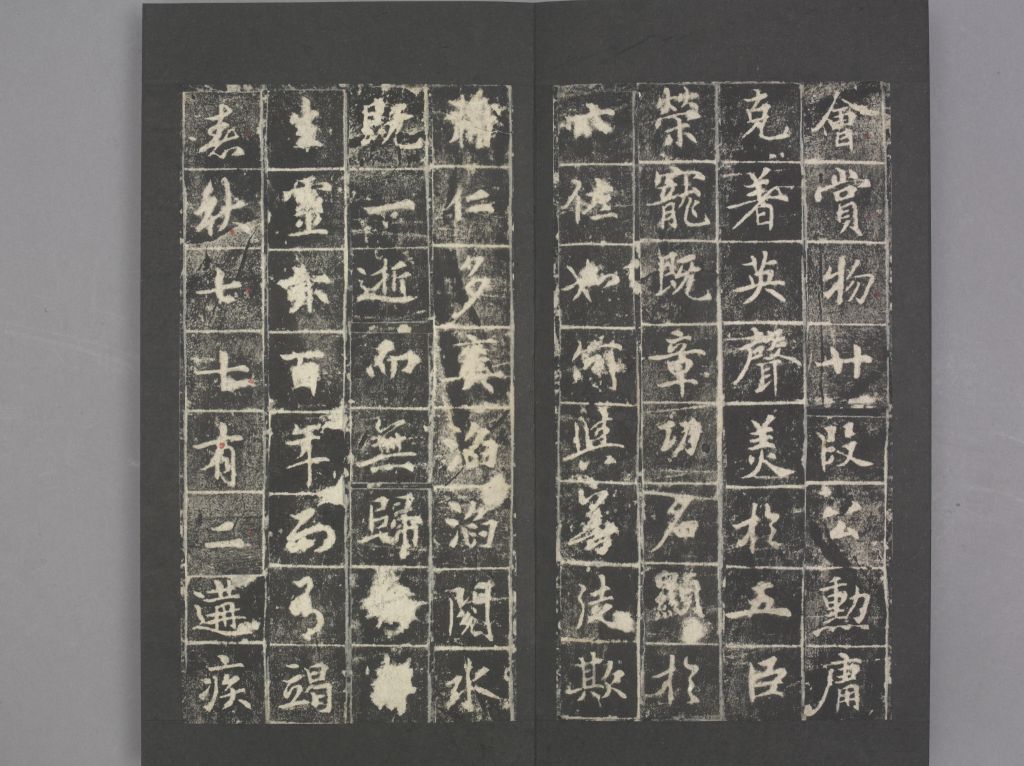 會賞物廿段公勳庸
克著英聲美於五臣
榮寵既章功名顯於
六佐如何與善徒欺
輔仁多爽滔滔閱水
既一逝而無歸
生靈未百年而竭
春秋七七有二遘疾